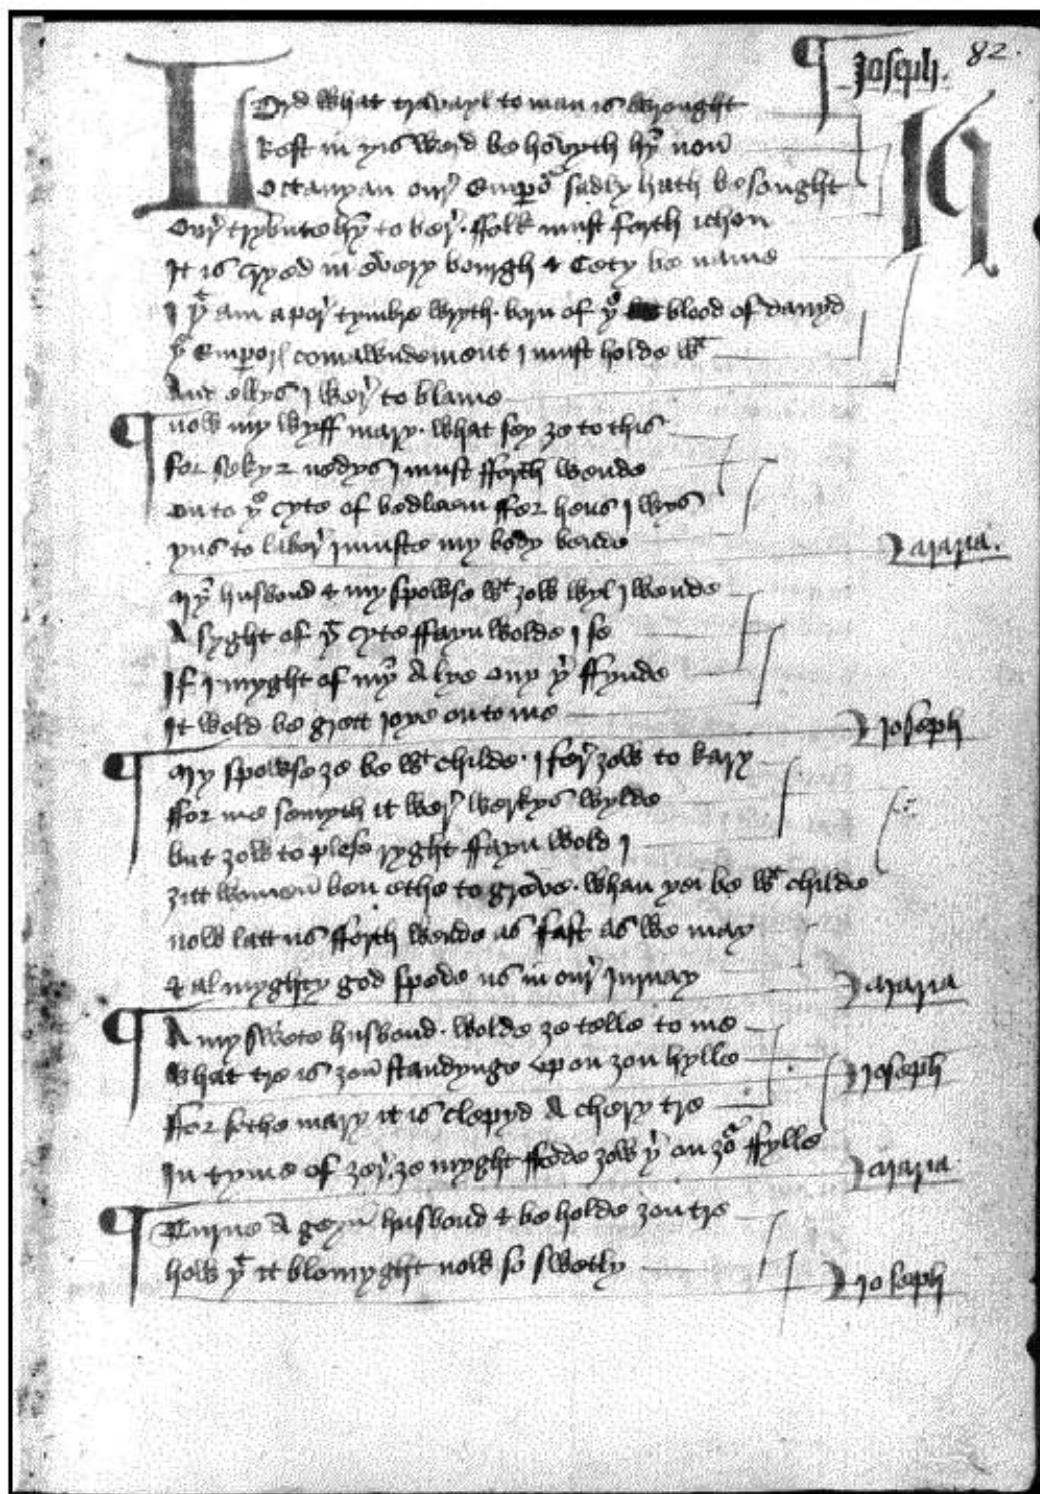 Joseph. 82.
Lord what travayl to man is wrought
Rest in yis werd be hovyth hȳ non
Octavyan our Emperor sadly hath be sought
our trybute hȳ to ber. ffolk must forth ichon
It is cryed in every bourgh & Cety be name
I yt am a por tymbre wryth. born of ye blood of davyd
ye Emperorʃ comawndement I must holde wt
And ellys I wer to blame
now my wyff mary. what sey ȝe to this
for sekyr nedys I must fforth wende
on to ye cyte of bedleem ffer hens I wys
yus to labor I muste my body bende
Maria.
Myn husbond & my spowse wt ȝow wyl I wende
A syght of yt cyte ffayn wolde I se
If I myght of myn Alye ony yer ffynde
It wold be grett joye onto me
Joseph
My spowse ȝe be wt childe. I fer ȝow to kary
ffor me semyth it wer werkys wylde
but ȝow to plese ryght ffayn wold I
ȝitt women ben ethe to greve. whan yei be wt childe
now latt us fforth wende as fast as we may
& al myghty god spede us in our jurnay
Maria
A my swete husbond. wolde ȝe telle to me
what tre is ȝon standynge vpon ȝon hylle
Joseph
ffor sothe mary it is clepyd A chery tre
In tyme of ȝer. ȝe myght ffede ȝow yer on ȝour ffylle
Maria
Turne A geyn husbond & be holde ȝon tre
how yt it blomyght now so swetly
Joseph